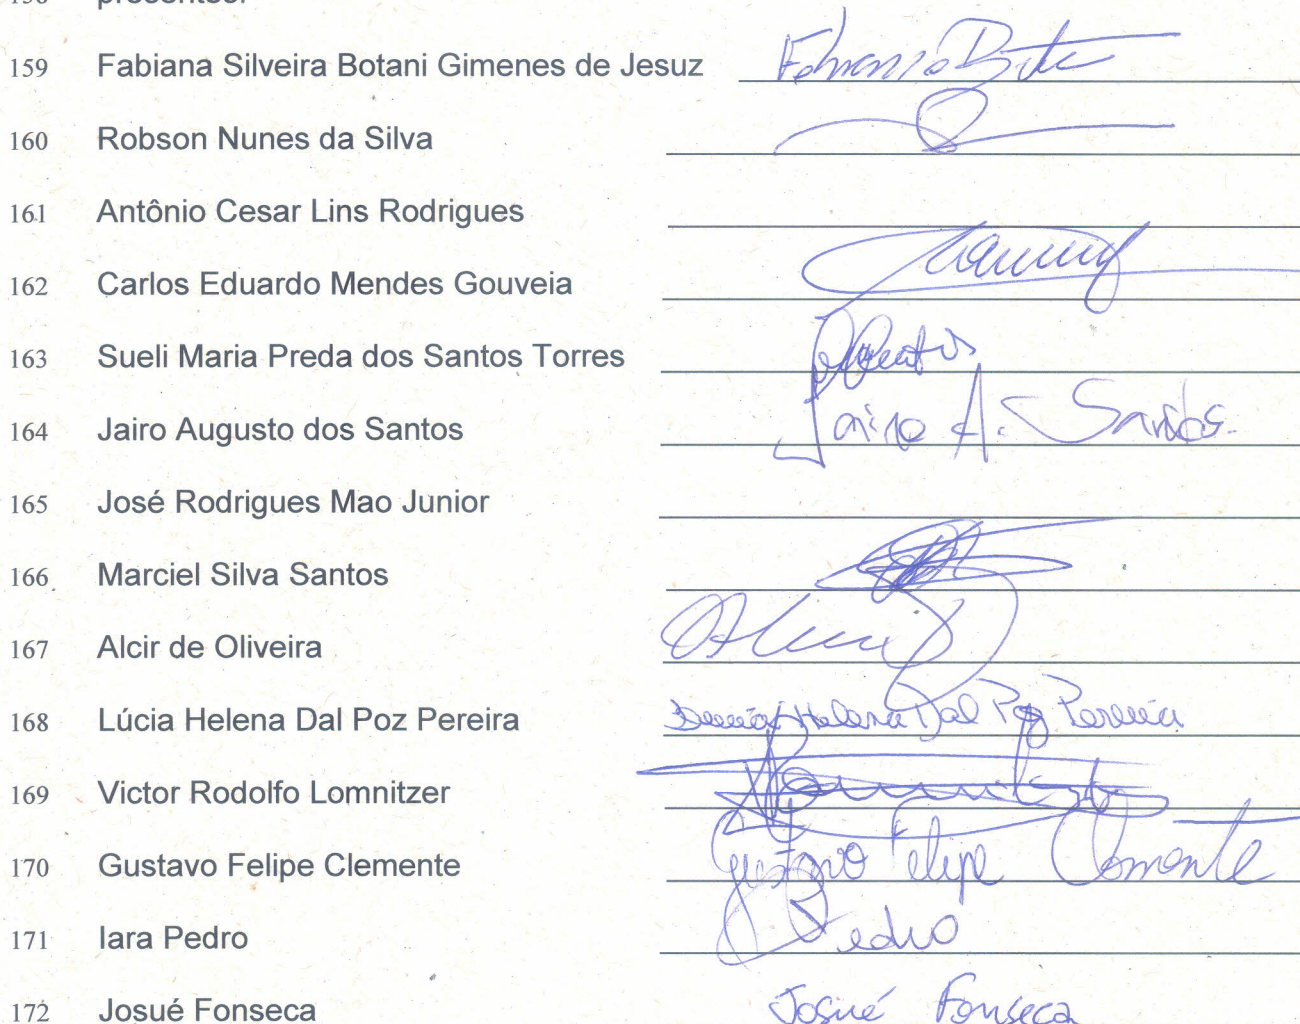 159 Fabiana Silveira Botani Gimenes de Jesuz
160 Robson Nunes da Silva
161 Antônio Cesar Lins Rodrigues
162 Carlos Eduardo Mendes Gouveia
163 Sueli Maria Preda dos Santos Torres
164 Jairo Augusto dos Santos Jairo A. Santos
165 José Rodrigues Mao Junior
166 Marciel Silva Santos
167 Alcir de Oliveira
168 Lúcia Helena Dal Poz Pereira Helena Dal Poz Pereira
169 Victor Rodolfo Lomnitzer
170 Gustavo Felipe Clemente Gustavo Felipe Clemente
171 Iara Pedro Pedro
172 Josué Fonseca Josué Fonseca